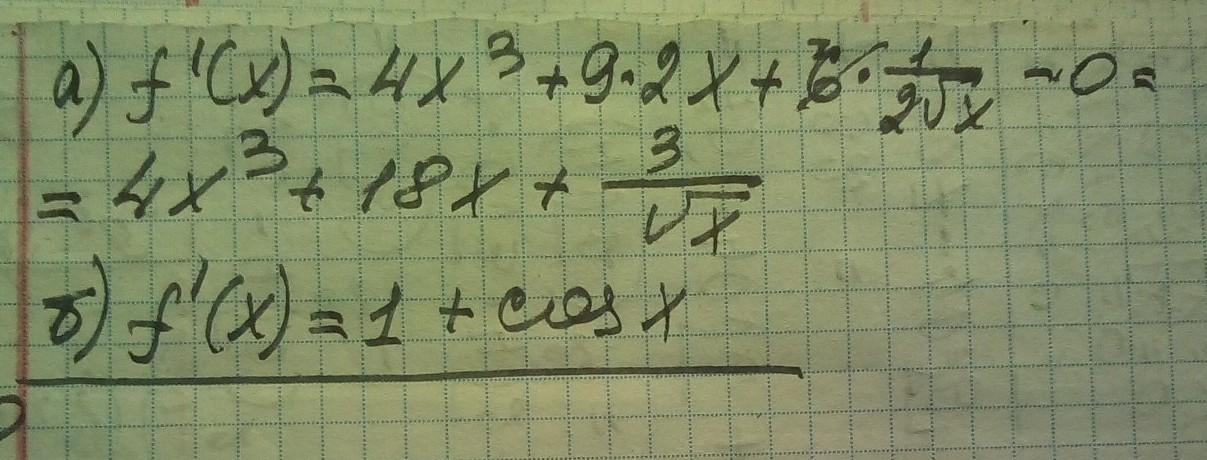 а) f'(x) = 4x³ + 9·2x + 6· 1/2√x - 0 =
= 4x³ + 18x + 3/√x
б) f'(x) = 1 + cos x